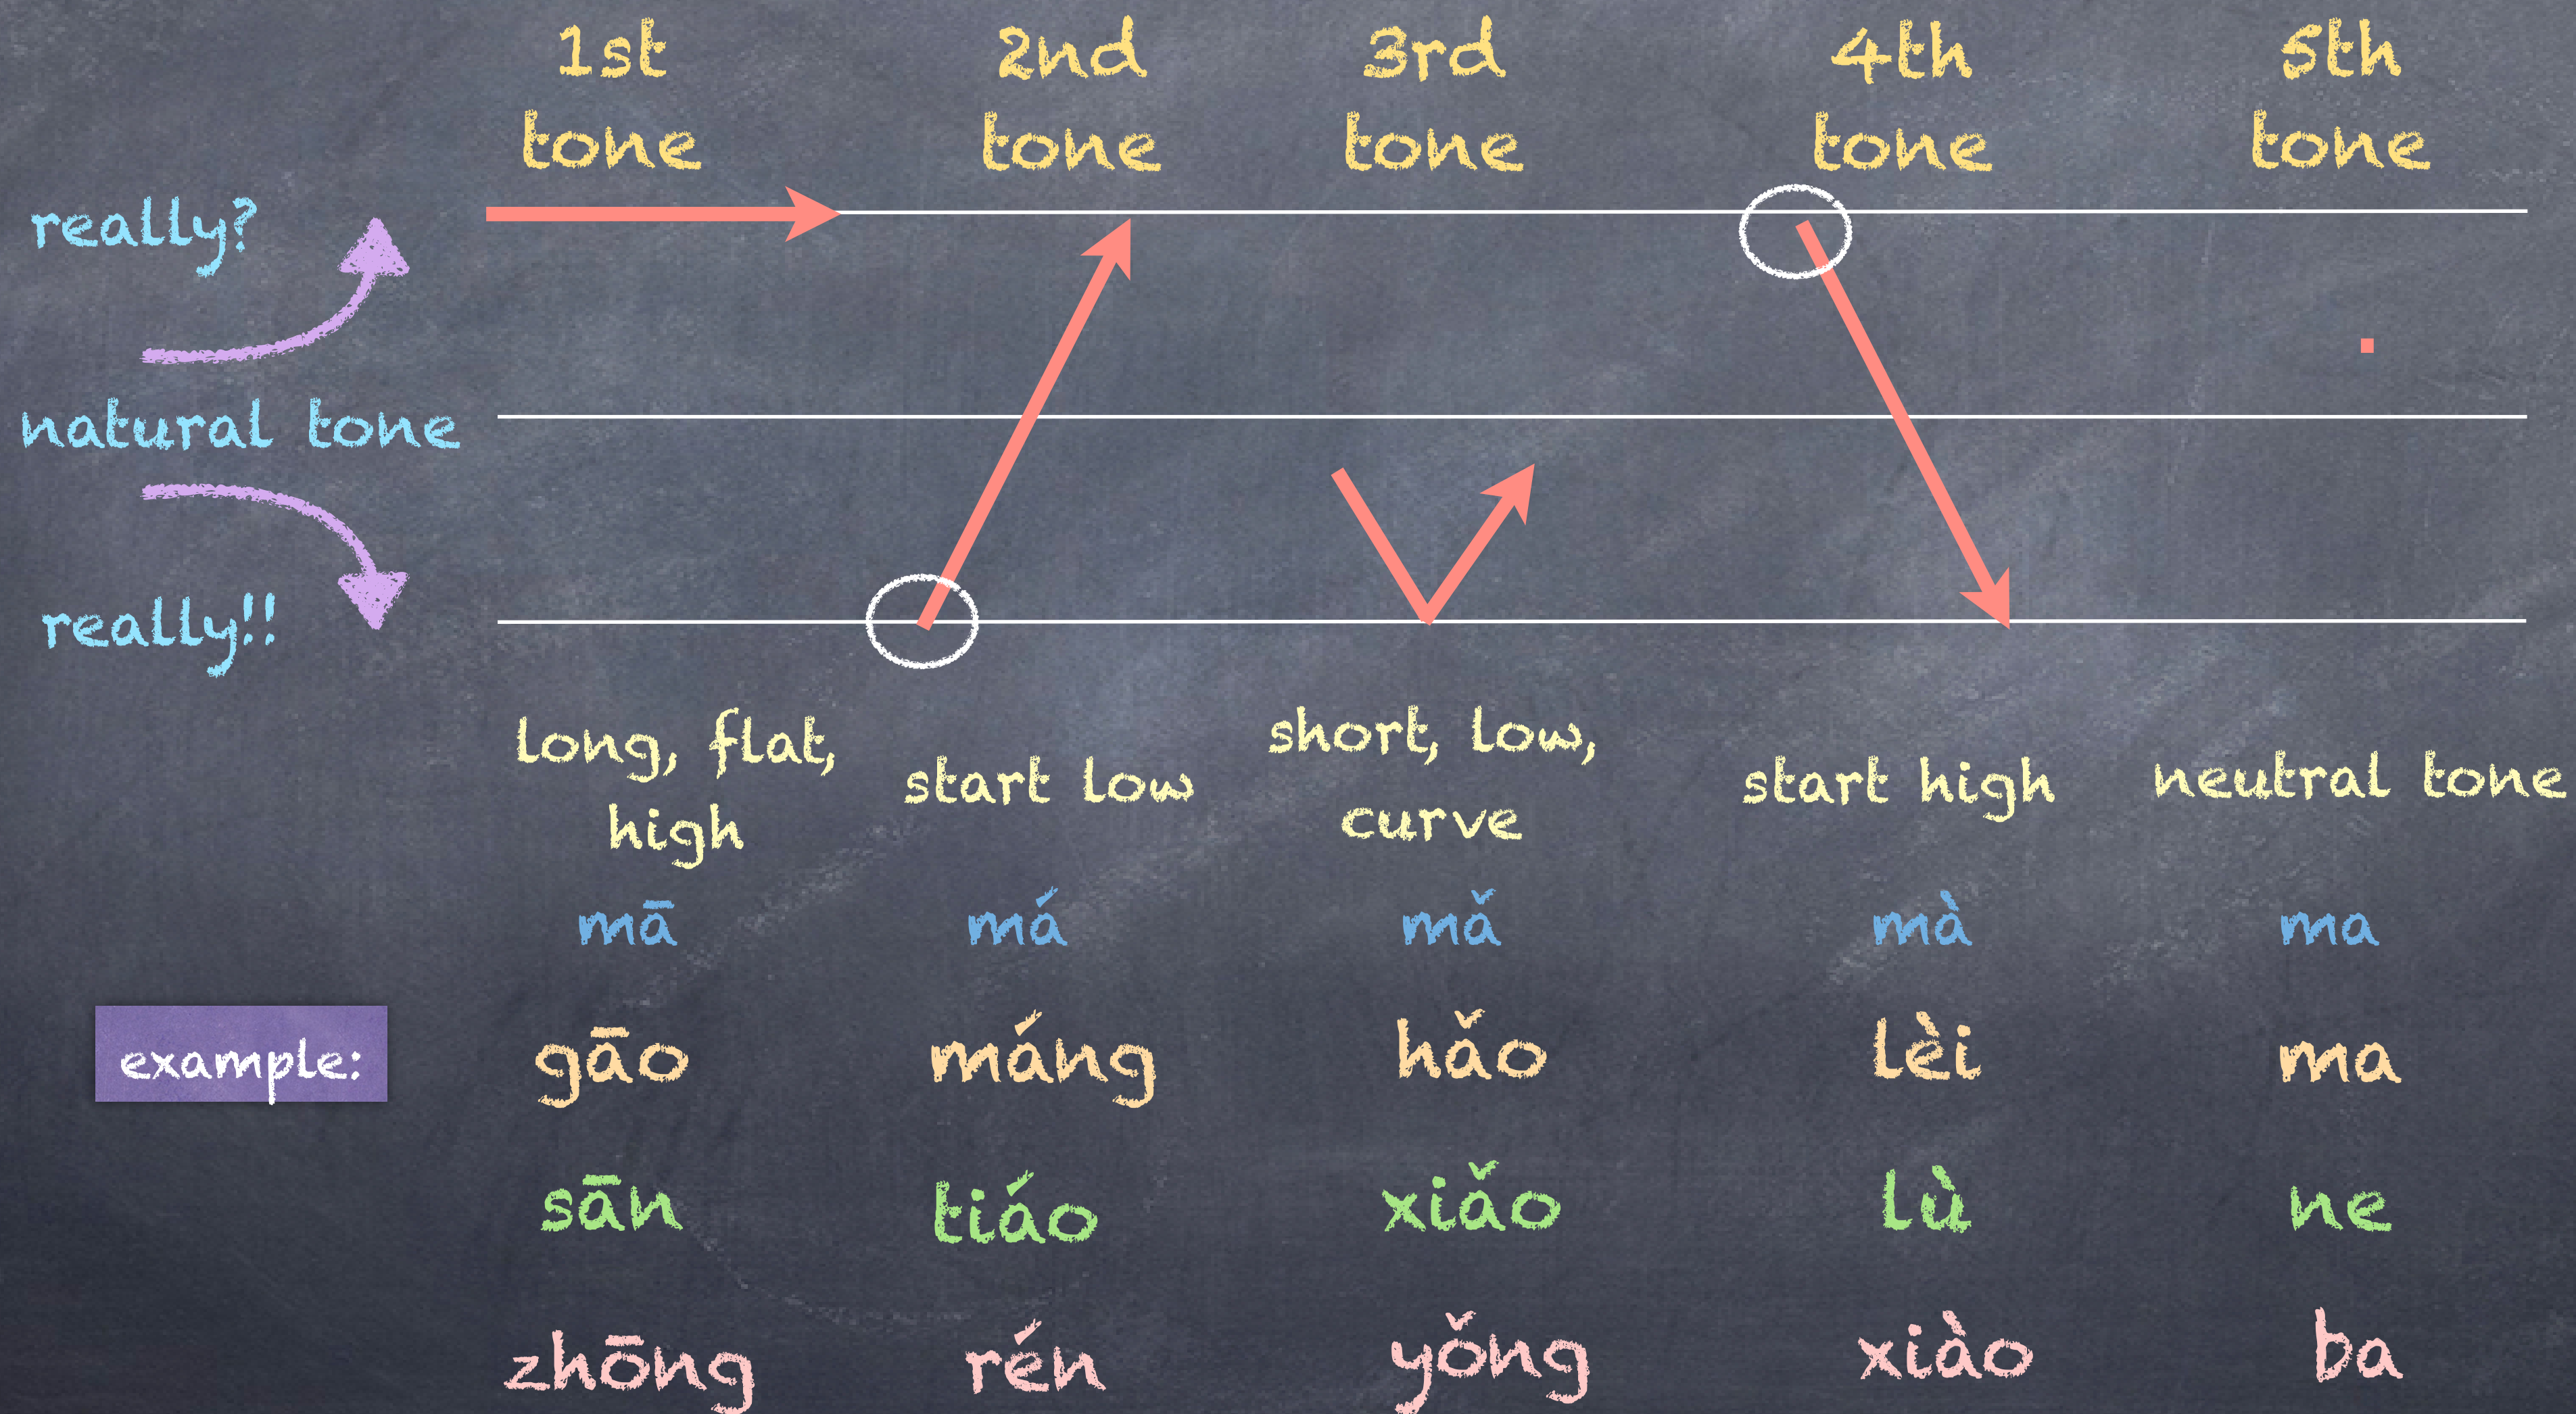 1st tone
2nd tone
3rd tone
4th tone
5th tone
really?
natural tone
really!!
long, flat, high
start low
short, low, curve
start high
neutral tone
mā má mǎ mà ma
example: gāo máng hǎo lèi ma
sān tiáo xiǎo lù ne
zhōng rén yǒng xiào ba